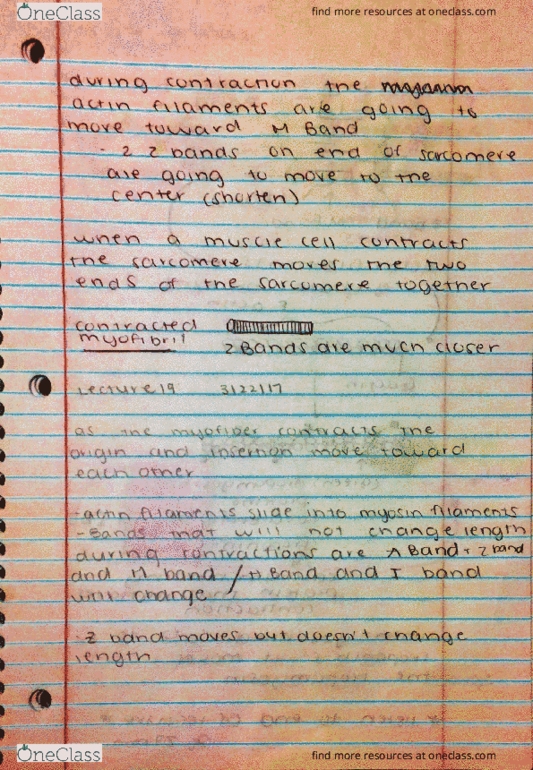 OneClass
find more resources at oneclass.com
during contraction the
actin filaments are going to
move toward M Band
- 2 Z bands on end of sarcomere
are going to move to the
center (shorten)
when a muscle cell contracts
the sarcomere moves the two
ends of the sarcomere together
contracted
myofibril
Z Bands are much closer
Lecture 19 3/22/17
as the myofiber contracts the
origin and insertion move toward
each other
-actin filaments slide into myosin filaments
-Bands that will not change length
during contractions are A Band + Z band
and M band / H Band, and I band
will change
-Z band moves but doesn't change
length
OneClass
find more resources at oneclass.com